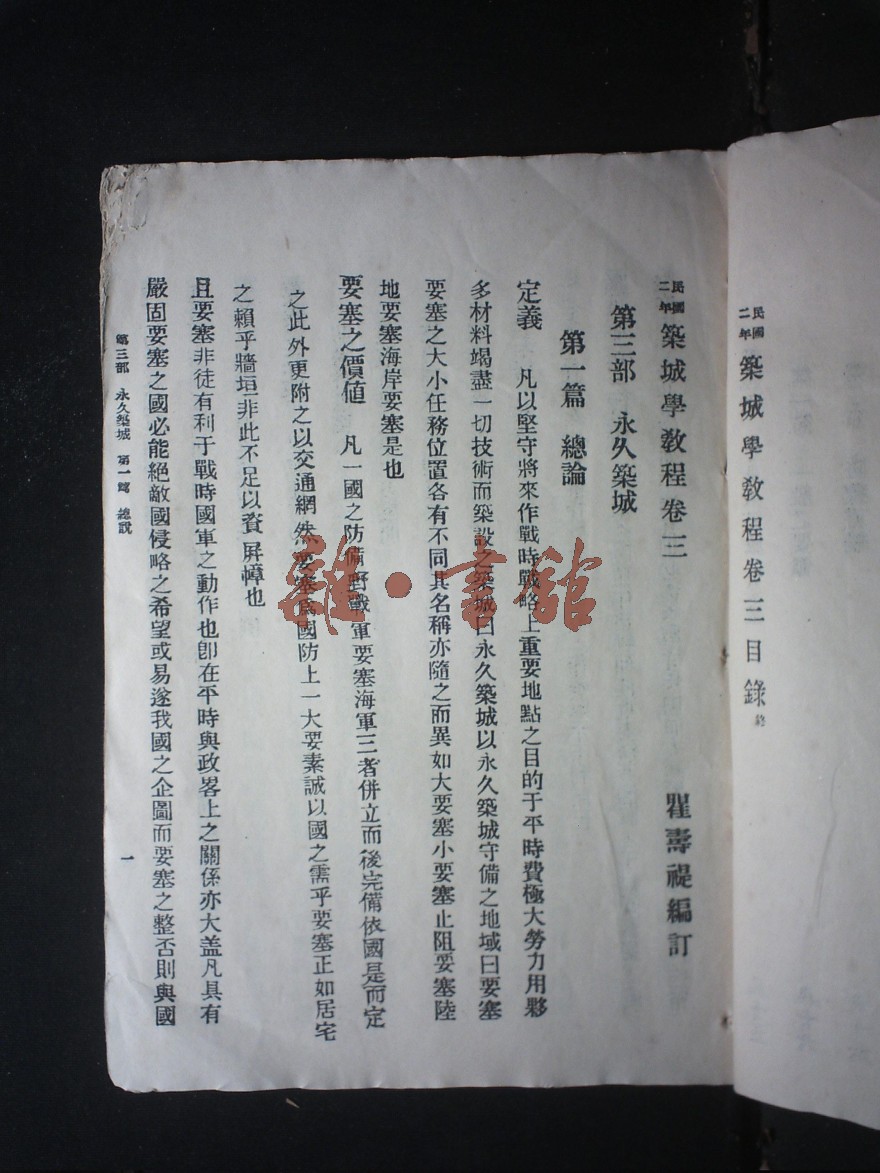 民國二年 築城學教程卷三目錄終
民國二年 築城學教程卷三
瞿壽禔編訂
第三部 永久築城
第一篇 總論
定義 凡以堅守將來作戰時戰略上重要地點之目的于平時費極大勞力用夥
多材料竭盡一切技術而築設之築城曰永久築城以永久築城守備之地域曰要塞
要塞之大小任務位置各有不同其名稱亦隨之而異如大要塞小要塞止阻要塞陸
地要塞海岸要塞是也
要塞之價値 凡一國之防備野戰軍要塞海軍三者併立而後完備依國是而定
之此外更附之以交通網然要塞爲國防上一大要素誠以國之需乎要塞正如居宅
之賴乎牆垣非此不足以資屏幛也
且要塞非徒有利于戰時國軍之動作也卽在平時與政畧上之關係亦大盖凡具有
嚴固要塞之國必能絕敵國侵略之希望或易遂我國之企圖而要塞之整否則與國
第三部 永久築城 第一篇 總說
一
雜·書館